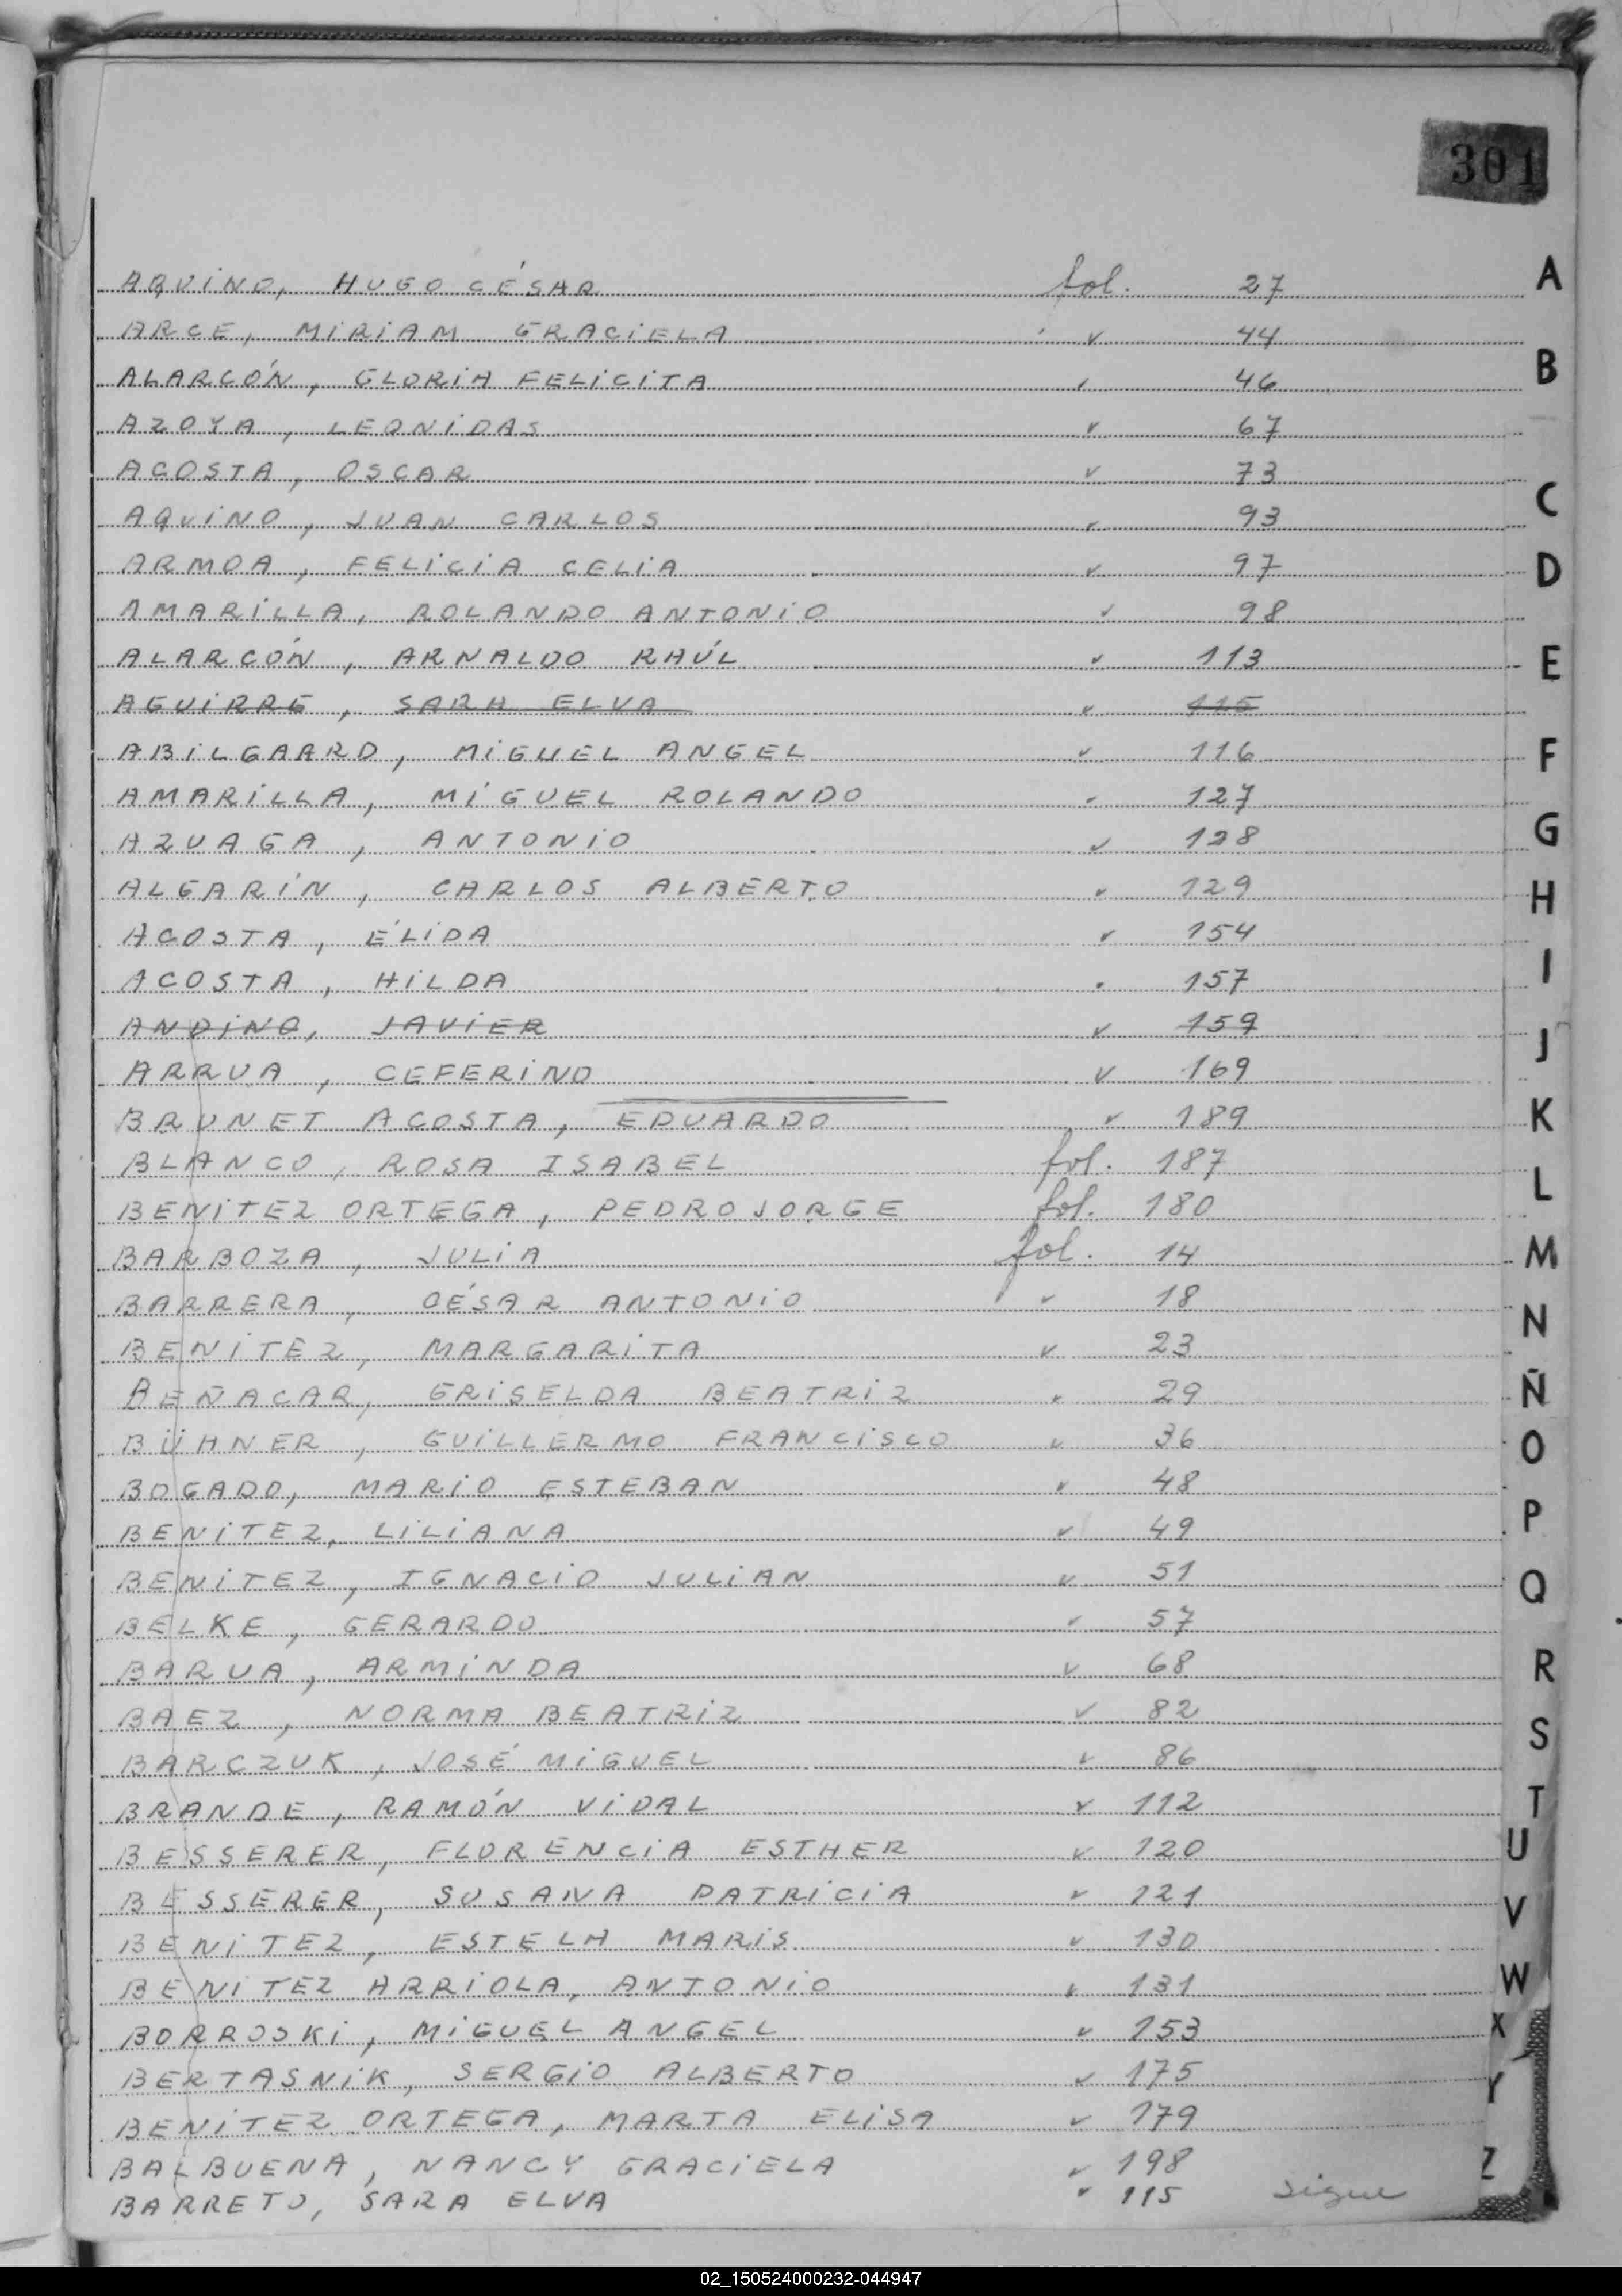 301
AQUINO, HUGO CÉSAR fol. 27
ARCE, MIRIAM GRACIELA " 44
ALARCÓN, GLORIA FELICITA " 46
AZOYA, LEONIDAS " 67
ACOSTA, OSCAR " 73
AQUINO, JUAN CARLOS " 93
ARMOA, FELICIA CELIA " 97
AMARILLA, ROLANDO ANTONIO " 98
ALARCÓN, ARNALDO RAÚL " 113
AGUIRRE, SARA ELVA " 115
ABILGAARD, MIGUEL ANGEL " 116
AMARILLA, MIGUEL ROLANDO " 127
AZUAGA, ANTONIO " 128
ALGARÍN, CARLOS ALBERTO " 129
ACOSTA, ÉLIDA " 154
ACOSTA, HILDA " 157
ANDINO, JAVIER " 159
ARRUA, CEFERINO " 169
BRUNET ACOSTA, EDUARDO " 189
BLANCO, ROSA ISABEL fol. 187
BENITEZ ORTEGA, PEDRO JORGE fol. 180
BARBOZA, JULIA fol. 14
BARRERA, CÉSAR ANTONIO " 18
BENITEZ, MARGARITA " 23
BEÑACAR, GRISELDA BEATRIZ " 29
BÜHNER, GUILLERMO FRANCISCO " 36
BOGADO, MARIO ESTEBAN " 48
BENITEZ, LILIANA " 49
BENITEZ, IGNACIO JULIAN " 51
BELKE, GERARDO " 57
BARUA, ARMINDA " 68
BAEZ, NORMA BEATRIZ " 82
BARCZUK, JOSÉ MIGUEL " 86
BRANDE, RAMÓN VIDAL " 112
BESSERER, FLORENCIA ESTHER " 120
BESSERER, SUSANA PATRICIA " 121
BENITEZ, ESTELA MARIS " 130
BENITEZ ARRIOLA, ANTONIO " 131
BORROSKI, MIGUEL ANGEL " 153
BERTASNIK, SERGIO ALBERTO " 175
BENITEZ ORTEGA, MARTA ELISA " 179
BALBUENA, NANCY GRACIELA " 198
BARRETO, SARA ELVA " 115 sigue
A
B
C
D
E
F
G
H
I
J
K
L
M
N
Ñ
O
P
Q
R
S
T
U
V
W
X
Y
Z
02_150524000232-044947